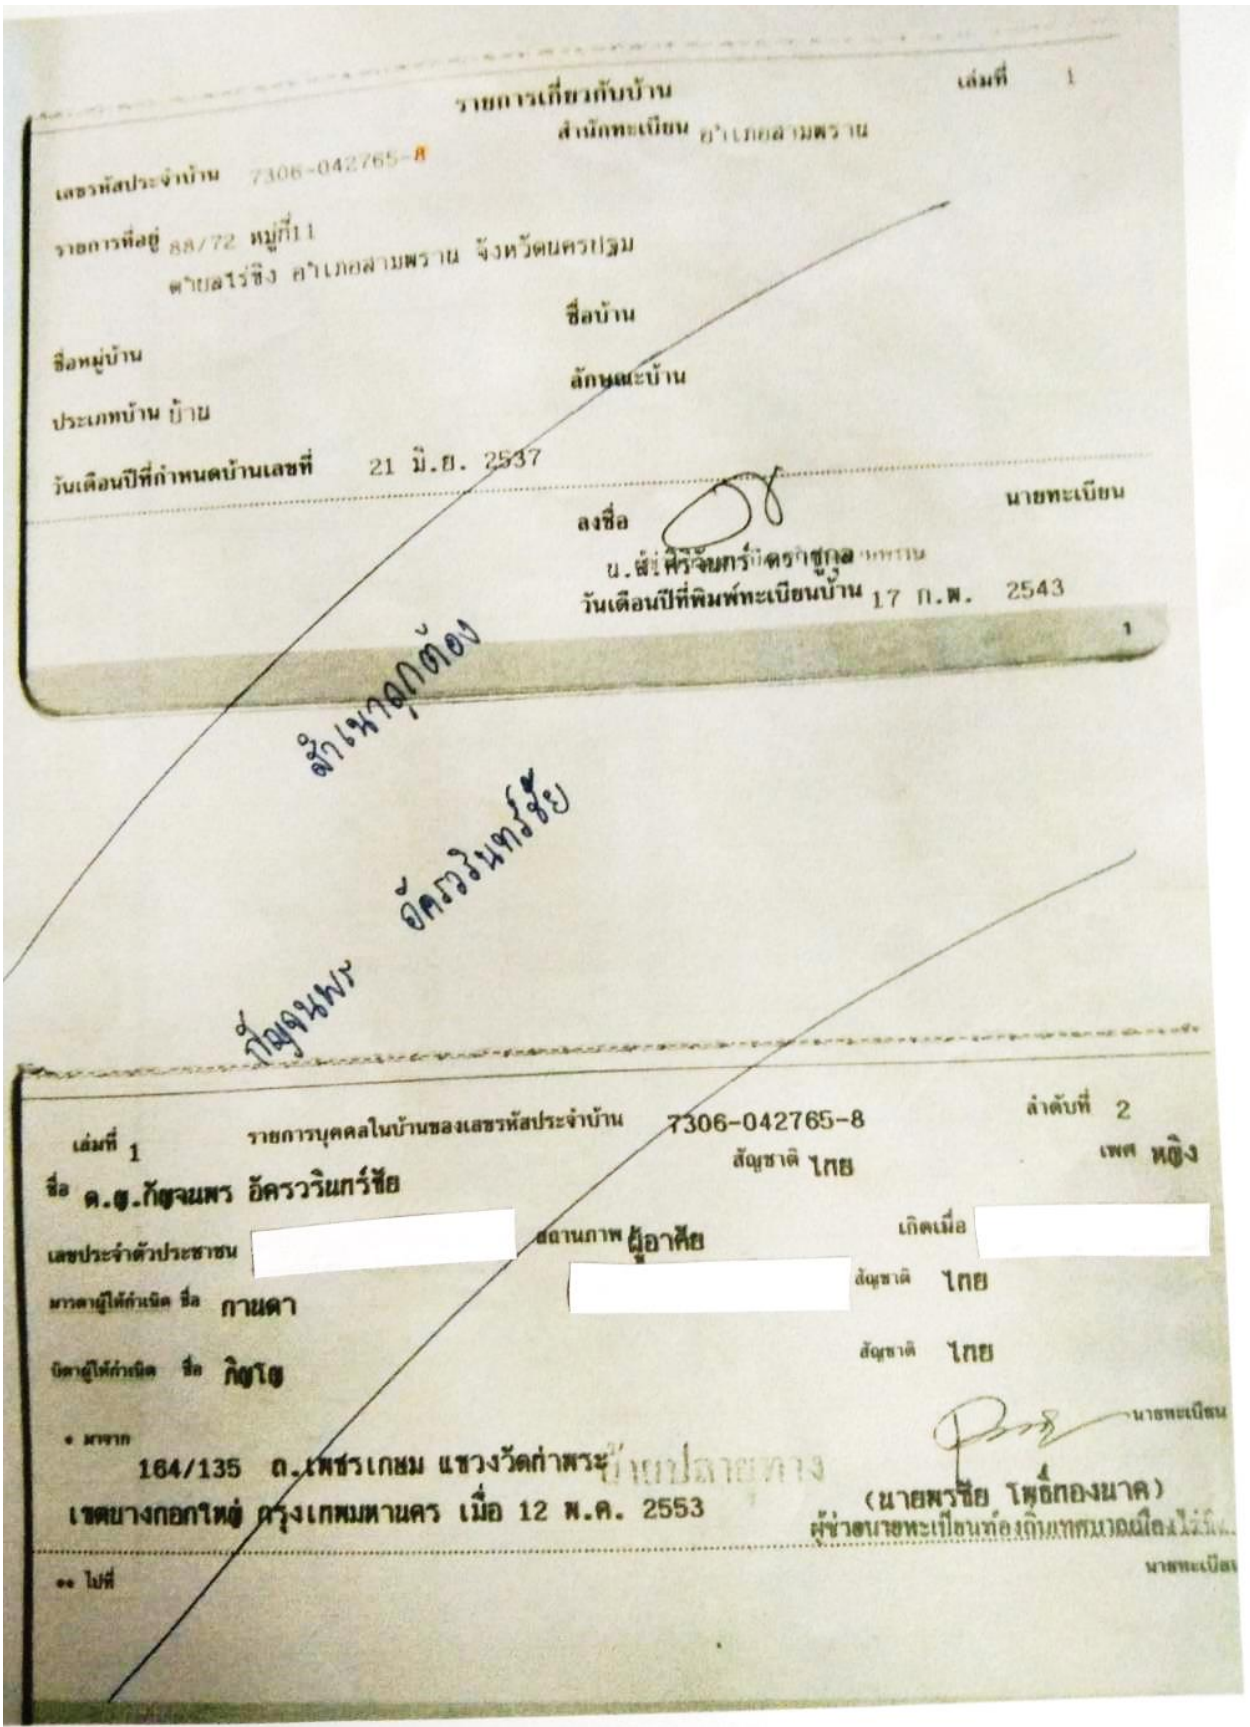 รายการเกี่ยวกับบ้าน เล่มที่ 1
สำนักทะเบียน อำเภอสามพราน
เลขรหัสประจำบ้าน 7306-042765-8
รายการที่อยู่ 88/72 หมู่ที่11
ตำบลไร่ขิง อำเภอสามพราน จังหวัดนครปฐม
ชื่อบ้าน
ชื่อหมู่บ้าน
ลักษณะบ้าน
ประเภทบ้าน บ้าน
วันเดือนปีที่กำหนดบ้านเลขที่ 21 มิ.ย. 2537
ลงชื่อ นายทะเบียน
น.ส.ศิริจันทร์ ตราชูกุล
วันเดือนปีที่พิมพ์ทะเบียนบ้าน 17 ก.พ. 2543
1
สำเนาถูกต้อง
กัญจนพร อัครวรินทร์ชัย
เล่มที่ 1 รายการบุคคลในบ้านของเลขรหัสประจำบ้าน 7306-042765-8 ลำดับที่ 2
ชื่อ ด.ญ.กัญจนพร อัครวรินทร์ชัย สัญชาติ ไทย เพศ หญิง
เลขประจำตัวประชาชน สถานภาพ ผู้อาศัย เกิดเมื่อ
มารดาผู้ให้กำเนิด ชื่อ กานดา สัญชาติ ไทย
บิดาผู้ให้กำเนิด ชื่อ ภิญโญ สัญชาติ ไทย
* มาจาก นายทะเบียน
164/135 ถ.เพชรเกษม แขวงวัดท่าพระ ย้ายปลายทาง
เขตบางกอกใหญ่ กรุงเทพมหานคร เมื่อ 12 พ.ค. 2553 (นายพรชัย โพธิ์ทองนาค)
ผู้ช่วยนายทะเบียนท้องถิ่นเทศบาลเมืองไร่ขิง
** ไปที่ นายทะเบียน